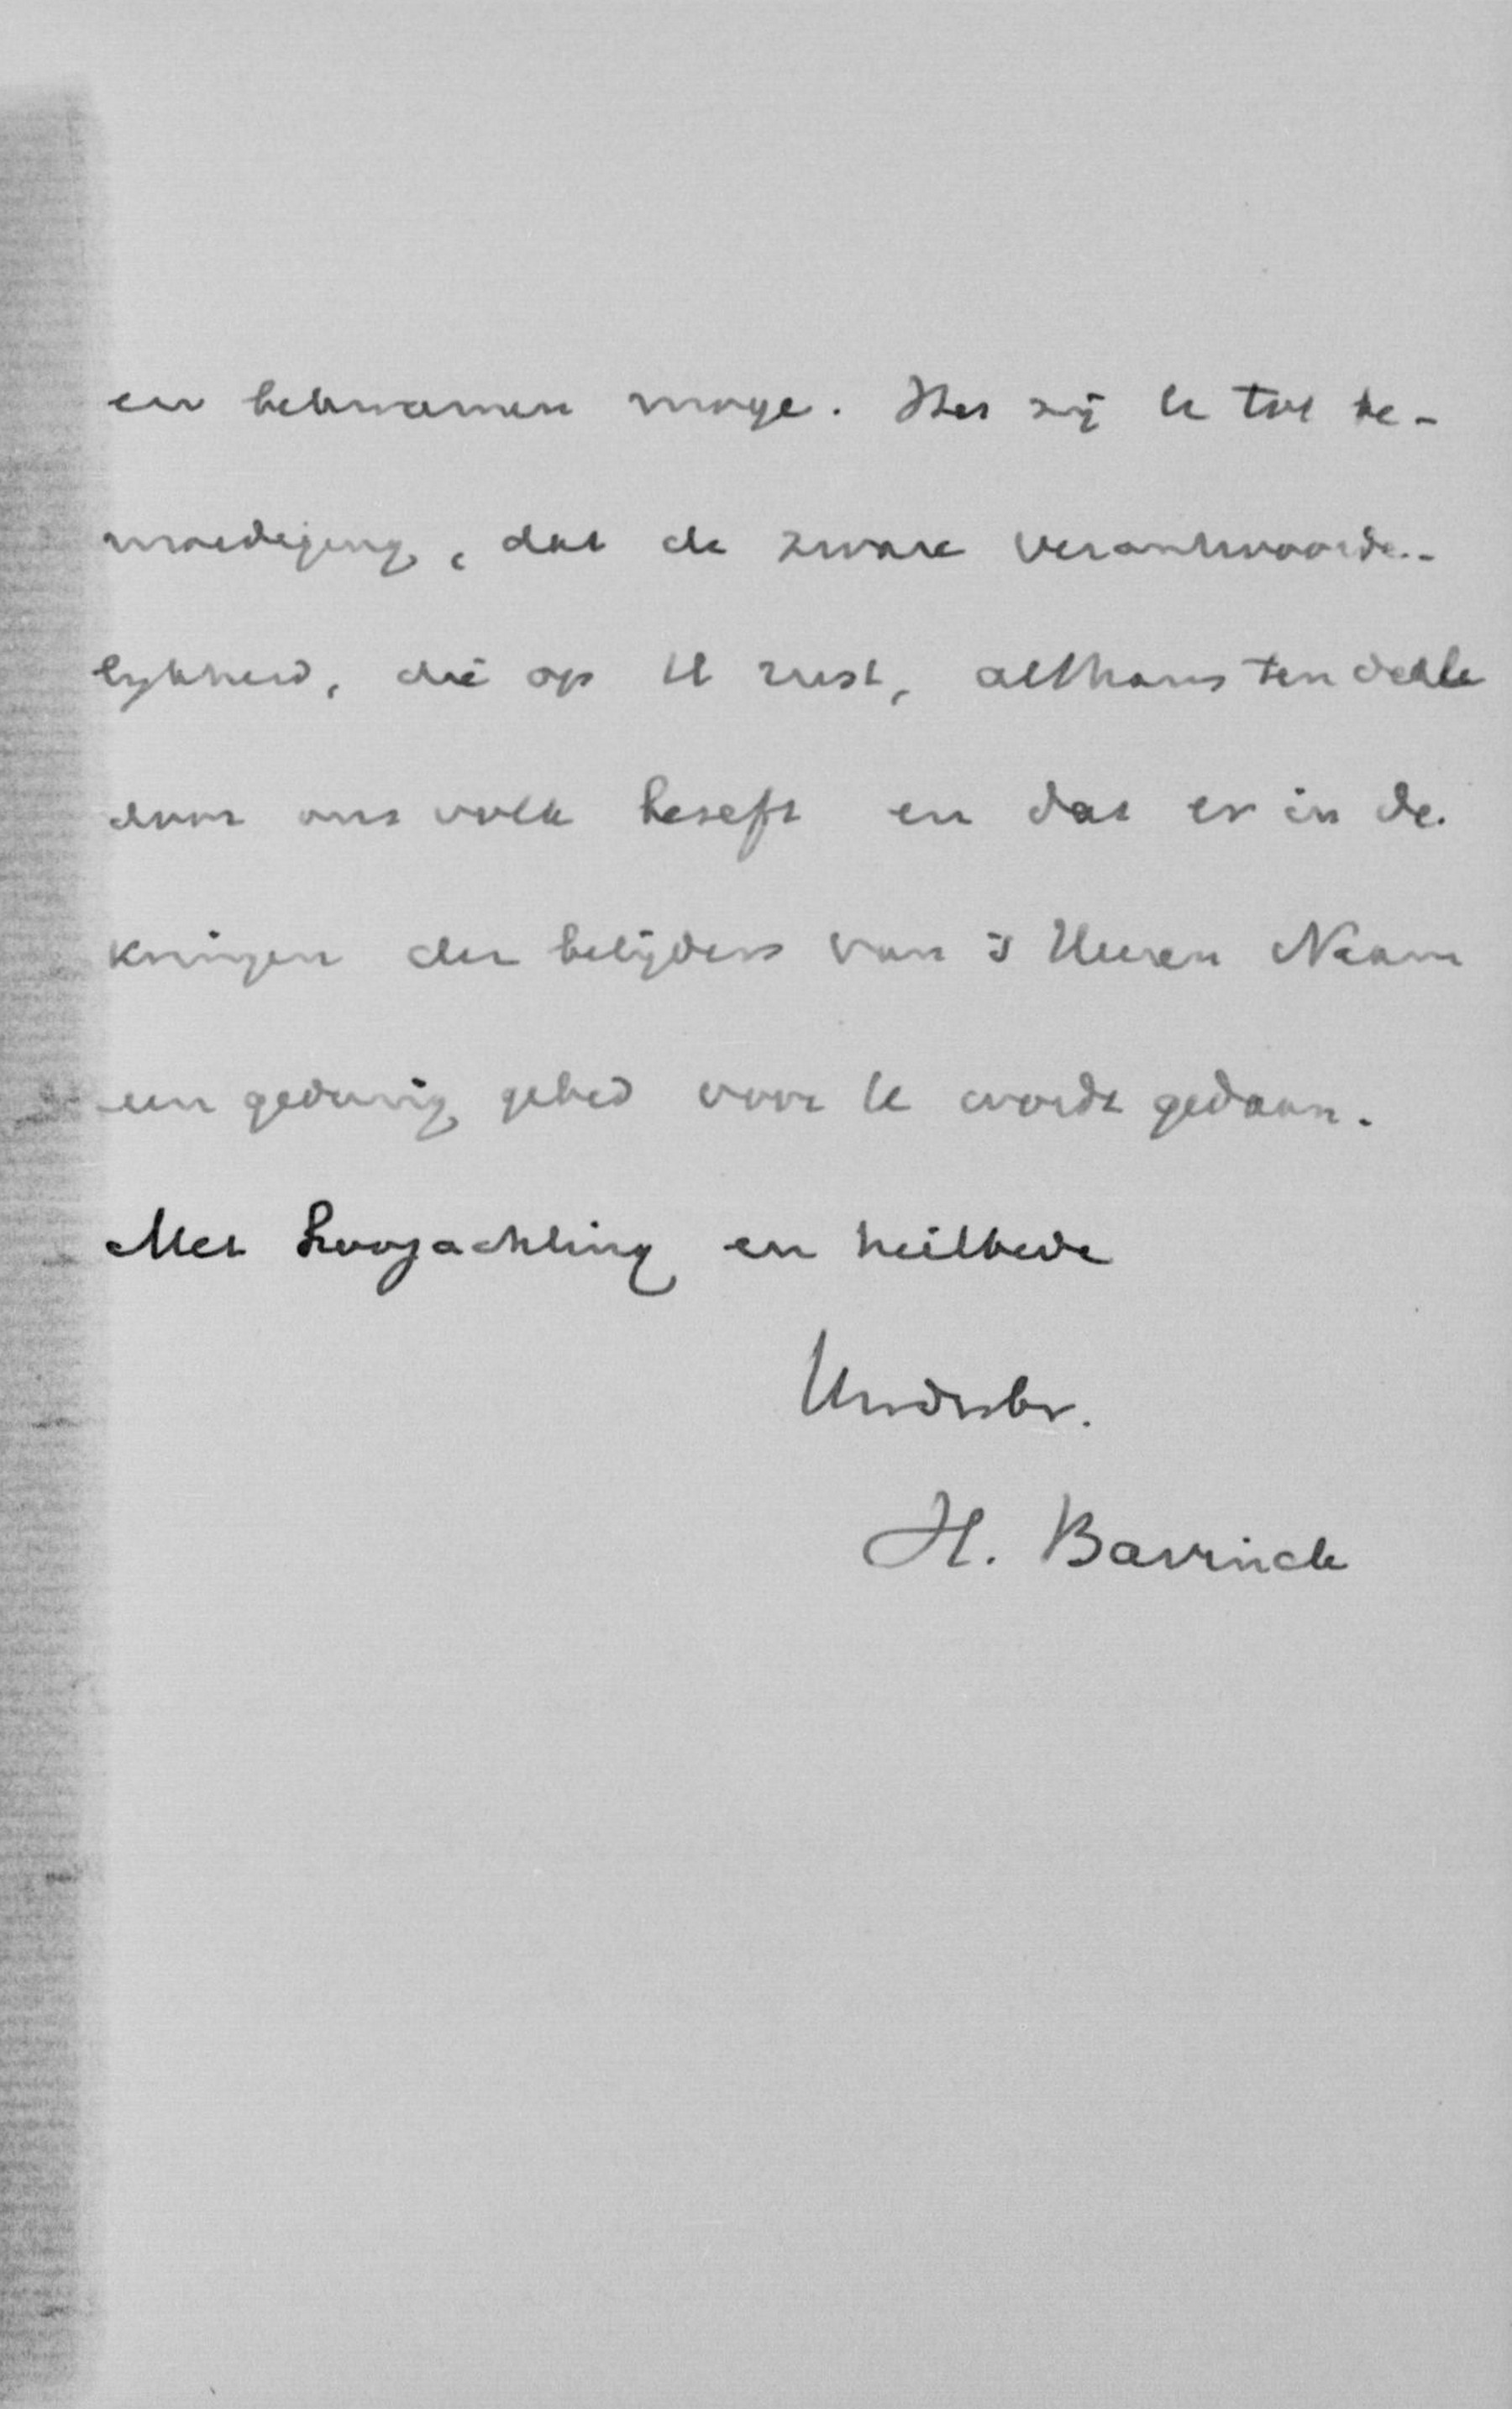 en bekwamen moge. Het zij U tot be-
moediging, dat de zware verantwoorde-
lykheid, die op U rust, althans ten deele
door ons volk beseft en dat er in de
kringen der belijders van 's Heeren Naam
een gedurig gebed voor U wordt gedaan.
Met hoogachting en heilbede
Uwdwbr.
H. Bavinck